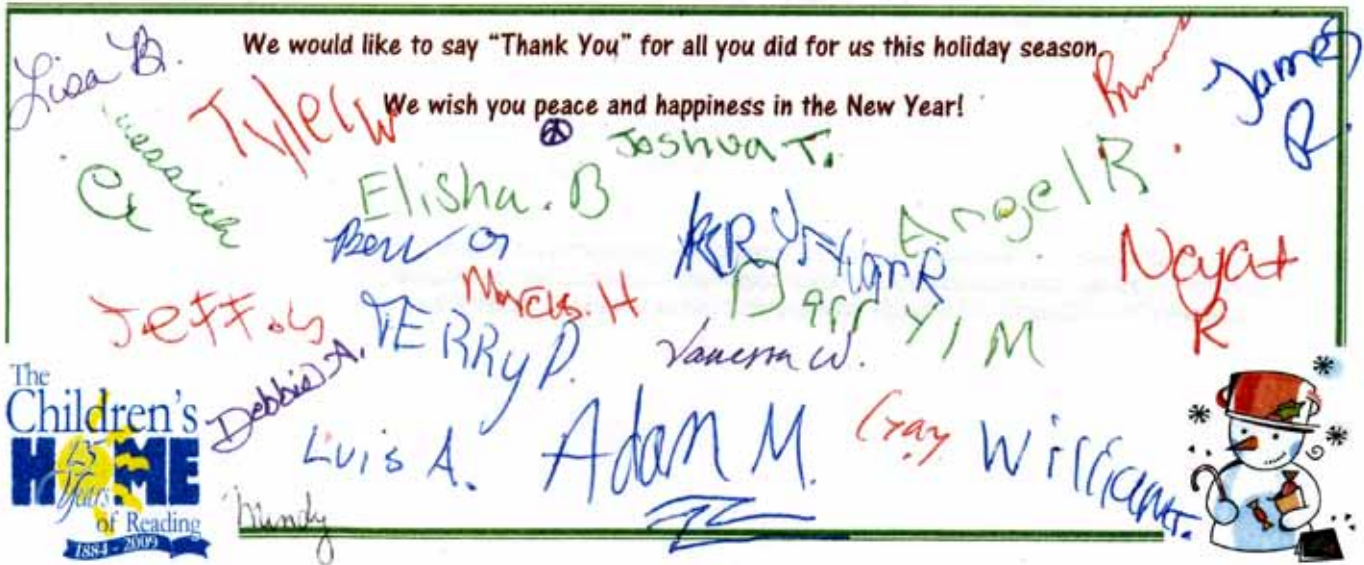 We would like to say “Thank You” for all you did for us this holiday season.
We wish you peace and happiness in the New Year!
Lisa B.
Tyler W
James
R.
Messiah
Joshua T.
Elisha. B
Angel R.
Ben
Nayat
R
Marcus. H
Darryl M
Jeff
TERRy P.
Vanessa W.
Debbie A.
Luis A.
Adam M.
William T.
Mindy
The
Children's
HOME
125
Years
of Reading
1884 - 2009